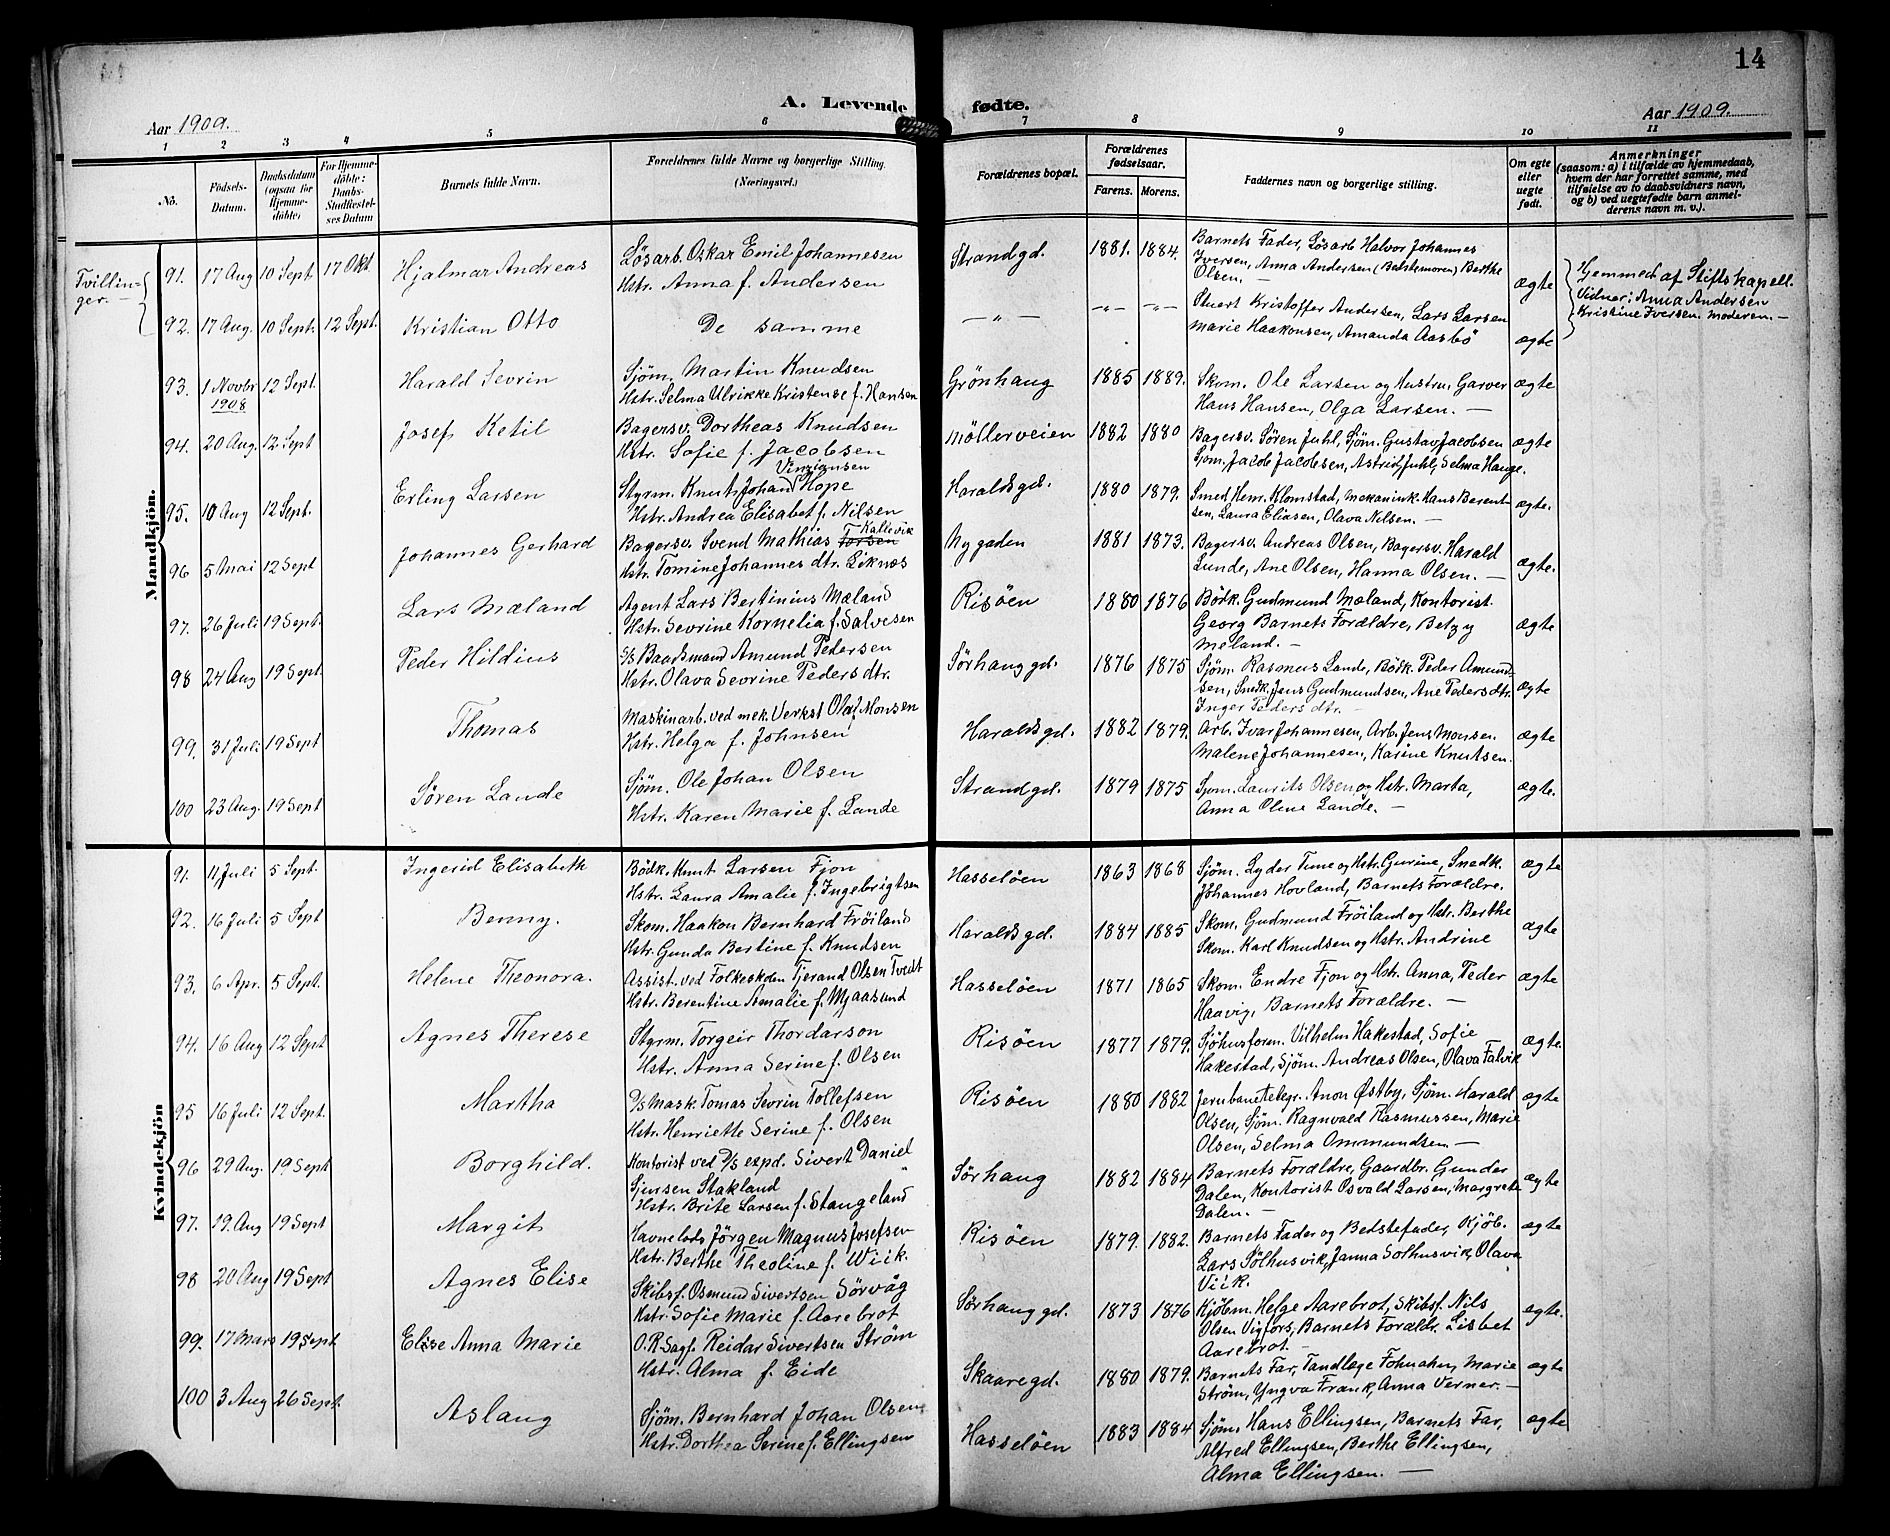 14
A. Levende fødte.
Aar 1909. Aar 1909.
1 2 3 4 5 6 7 8 9 10 11
No.
Fødsels-Datum.
Daabsdatum (ogsaa for Hjemme-døbte)
For Hjemme-døbte: Daabs-Stadfæstel-ses Datum
Barnets fulde Navn.
Forældrenes fulde Navne og borgerlige Stilling. (Næringsvei.)
Forældrenes bopæl.
Forældrenes fødselsaar.
Farens. Morens.
Faddernes navn og borgerlige stilling.
Om egte eller uegte født.
Anmerkninger
(saasom: a) i tilfælde av hjemmedaab,
hvem der har forrettet samme, med
tilføielse av to daabsvidners navn,
og b) ved uegtefødte barn anmel-
derens navn m. v.).
Mandkjön.
Tvillin-
ger. —
91. 17 Aug 10 Sept 17 Okt. Hjalmar Andreas
Løsarb. Oskar Emil Johannesen
Hstr. Anna f. Andersen
Strandgd. 1881. 1884.
Barnets Fader, Løsarb Halvor Johannes
Iversen, Anna Andersen (Bedstemoren) Berthe
Olsen. —
ægte
Hjemmed. af Stiftskapell.
Vidner: Anna Andersen
Kristine Iversen. Moderen. —
92. 17 Aug. 10 Sept. 12 Sept. Kristian Otto
De samme
— „ — -„- -„-
Stuert Kristoffer Andersen, Lars Larsen
Marie Haakonsen, Amanda Aasbö
ægte
93. 1 Novbr 1908 12 Sept. Harald Sevrin
Sjøm. Martin Knudsen
Hstr. Selma Ulrikke Kristense f. Hansen
Grönhaug 1885 1889.
Skom. Ole Larsen og Hustru, Garver
Hans Hansen, Olga Larsen. —
ægte
94. 20 Aug. 12 Sept Josef Ketil
Bagersv. Dortheas Knudsen
Hstr. Sofie f. Jacobsen
Möllerveien 1882 1880
Bagersv. Søren Juhl, Sjøm. Gustav Jacobsen
Sjøm. Jacob Jacobsen, Astrid Juhl, Selma Hauge.
ægte
95. 10 Aug 12 Sept. Erling Larsen
Vinzignsen
Styrm. Knut Johan Hope
Hstr. Andrea Elisabet f. Nilsen
Haraldsgd. 1880 1879.
Smed Henr. Klomstad, Mekanink. Hans Berent
sen, Laura Eliasen, Olava Nilsen. —
ægte.
96 5 Mai 12 Sept Johannes Gerhard
Kallevik
Bagersv. Svend Mathias Torsen
Hstr. Tomine Johannes dtr. Liknæs
Nygaden 1881 1873.
Bagersv. Andreas Olsen, Bagersv. Harald
Lunde, Ane Olsen, Hanna Olsen. —
ægte.
97. 26 Juli 19 Sept. Lars Mæland
Agent Lars Bertinius Mæland
Hstr. Sevrine Kornelia f. Salvesen
Risöen 1880 1876
Bødk. Gudmund Mæland, Kontorist.
Georg Barnets Forældre, Betzy
Meland. —
ægte
98 24 Aug 19 Sept. Peder Hildius
S/S Baadsmand Amund Pedersen
Hstr. Olava Sevrine Peders dtr.
Sørhauggd. 1876 1875
Sjøm. Rasmus Lande, Bødk. Peder Amund-
sen, Snedk. Jens Gudmundsen, Ane Peders dtr.
Inger Peders dtr. —
ægte
99. 31 Juli 19 Sept Thomas
Maskinarb. ved mek. Verkst Olaf Monsen
Hstr. Helga f. Johnsen
Haraldsgd. 1882 1879.
Arb. Ivar Johannesen, Arb. Jens Monsen
Malene Johannesen, Karine Knutsen.
ægte
100 23 Aug. 19 Sept Søren Lande
Sjøm. Ole Johan Olsen
Hstr. Karen Marie f. Lande
Strandgd. 1879 1875
Sjøm. Laurits Olsen og Hstr. Marta,
Anna Oline Lande. —
ægte.
Kvindekjön
91. 11 Juli 5 Sept. Ingerid Elisabeth
Bödk. Knut Larsen Fjon
Hstr. Laura Amalie f. Ingebrigtsen
Hasselöen 1863 1868
Sjøm. Lyder Tune og Hstr. Gurine, Snedk.
Johannes Hovland, Barnets Forældre.
ægte
92. 16 Juli 5 Sept Benny.
Skom. Haakon Bernhard Fröiland
Hstr. Gunda Bertine f. Knudsen
Haraldsgd. 1884 1885
Skom. Gudmund Fröiland og Hstr. Berthe
Skom. Karl Knudsen og Hstr. Andrine
ægte
93. 6 Apr. 5 Sept. Helene Theonora.
Assist. ved Folkeskolen Tjerand Olsen Tvedt
Hstr. Berentine Amalie f. Mjaasund
Hasselöen 1871 1865
Skom. Endre Fjon og Hstr. Anna, Peder
Haavig, Barnets Forældre. —
ægte
94. 16 Aug 12 Sept Agnes Therese
Styrm. Torgeir Thordarson
Hstr. Anna Serine f. Olsen
Risöen 1877 1879.
Sjöhusform. Vilhelm Hakestad, Sofie
Hakestad, Sjøm. Andreas Olsen, Olava Falvik
ægte.
95 16 Juli 12 Sept. Martha
D/S Mask. Tomas Sevrin Tollefsen
Hstr. Henriette Serine f. Olsen
Risöen 1880 1882
Jernbanetelegr. Anon Østby, Sjøm. Harald
Olsen, Sjøm. Ragnvald Rasmussen, Marie
Olsen, Selma Ommundsen —
ægte
96 29 Aug. 19 Sept Borghild.
Kontorist ved D/S expd. Sivert Daniel
Sjursen Stakland
Hstr. Brite Larsen f. Stangeland
Sørhaug 1882 1884
Barnets Forældre, Gaardbr. Gunder
Dalen, Kontorist Osvald Larsen, Margrete
Dalen. —
ægte
97. 19. Aug 19 Sept Margit
Havnelods Jörgen Magnus Josefsen
Hstr. Berthe Theoline f. Wiik.
Risöen 1879. 1882.
Barnets Fader og Bedstefader, Kjöb.
Lars Sølhusvik, Janna Solhusvik, Olava
Viik.
ægte
98 20 Aug 19 Sept Agnes Elise
Skibsf. Osmund Sivertsen Sörvåg
Hstr. Sofie Marie f. Aarebrot
Sørhauggd. 1873 1876
Kjöbm. Helge Aarebrot, Skibsf. Nils
Olsen Vigfors, Barnets Forældr. Lisbet
Aarebrot. —
egte.
99. 17 Mars 19 Sept Elise Anna Marie
O.R. Sagf. Reidar Sivertsen Ström
Hstr. Alma f. Eide
Skaaregd. 1880 1879.
Barnets Far, Tandlæge Fohnahn, Marie
Ström, Yngva Frank, Anna Verner. —
ægte
100 3 Aug 26 Sept. Aslaug
Sjöm. Bernhard Johan Olsen
Hstr. Dorthea Serine f. Ellingsen
Hasselöen 1883 1884
Sjøm. Hans Ellingsen, Barnets Far,
Alfred Ellingsen, Berthe Ellingsen,
Alma Ellingsen. —
ægte